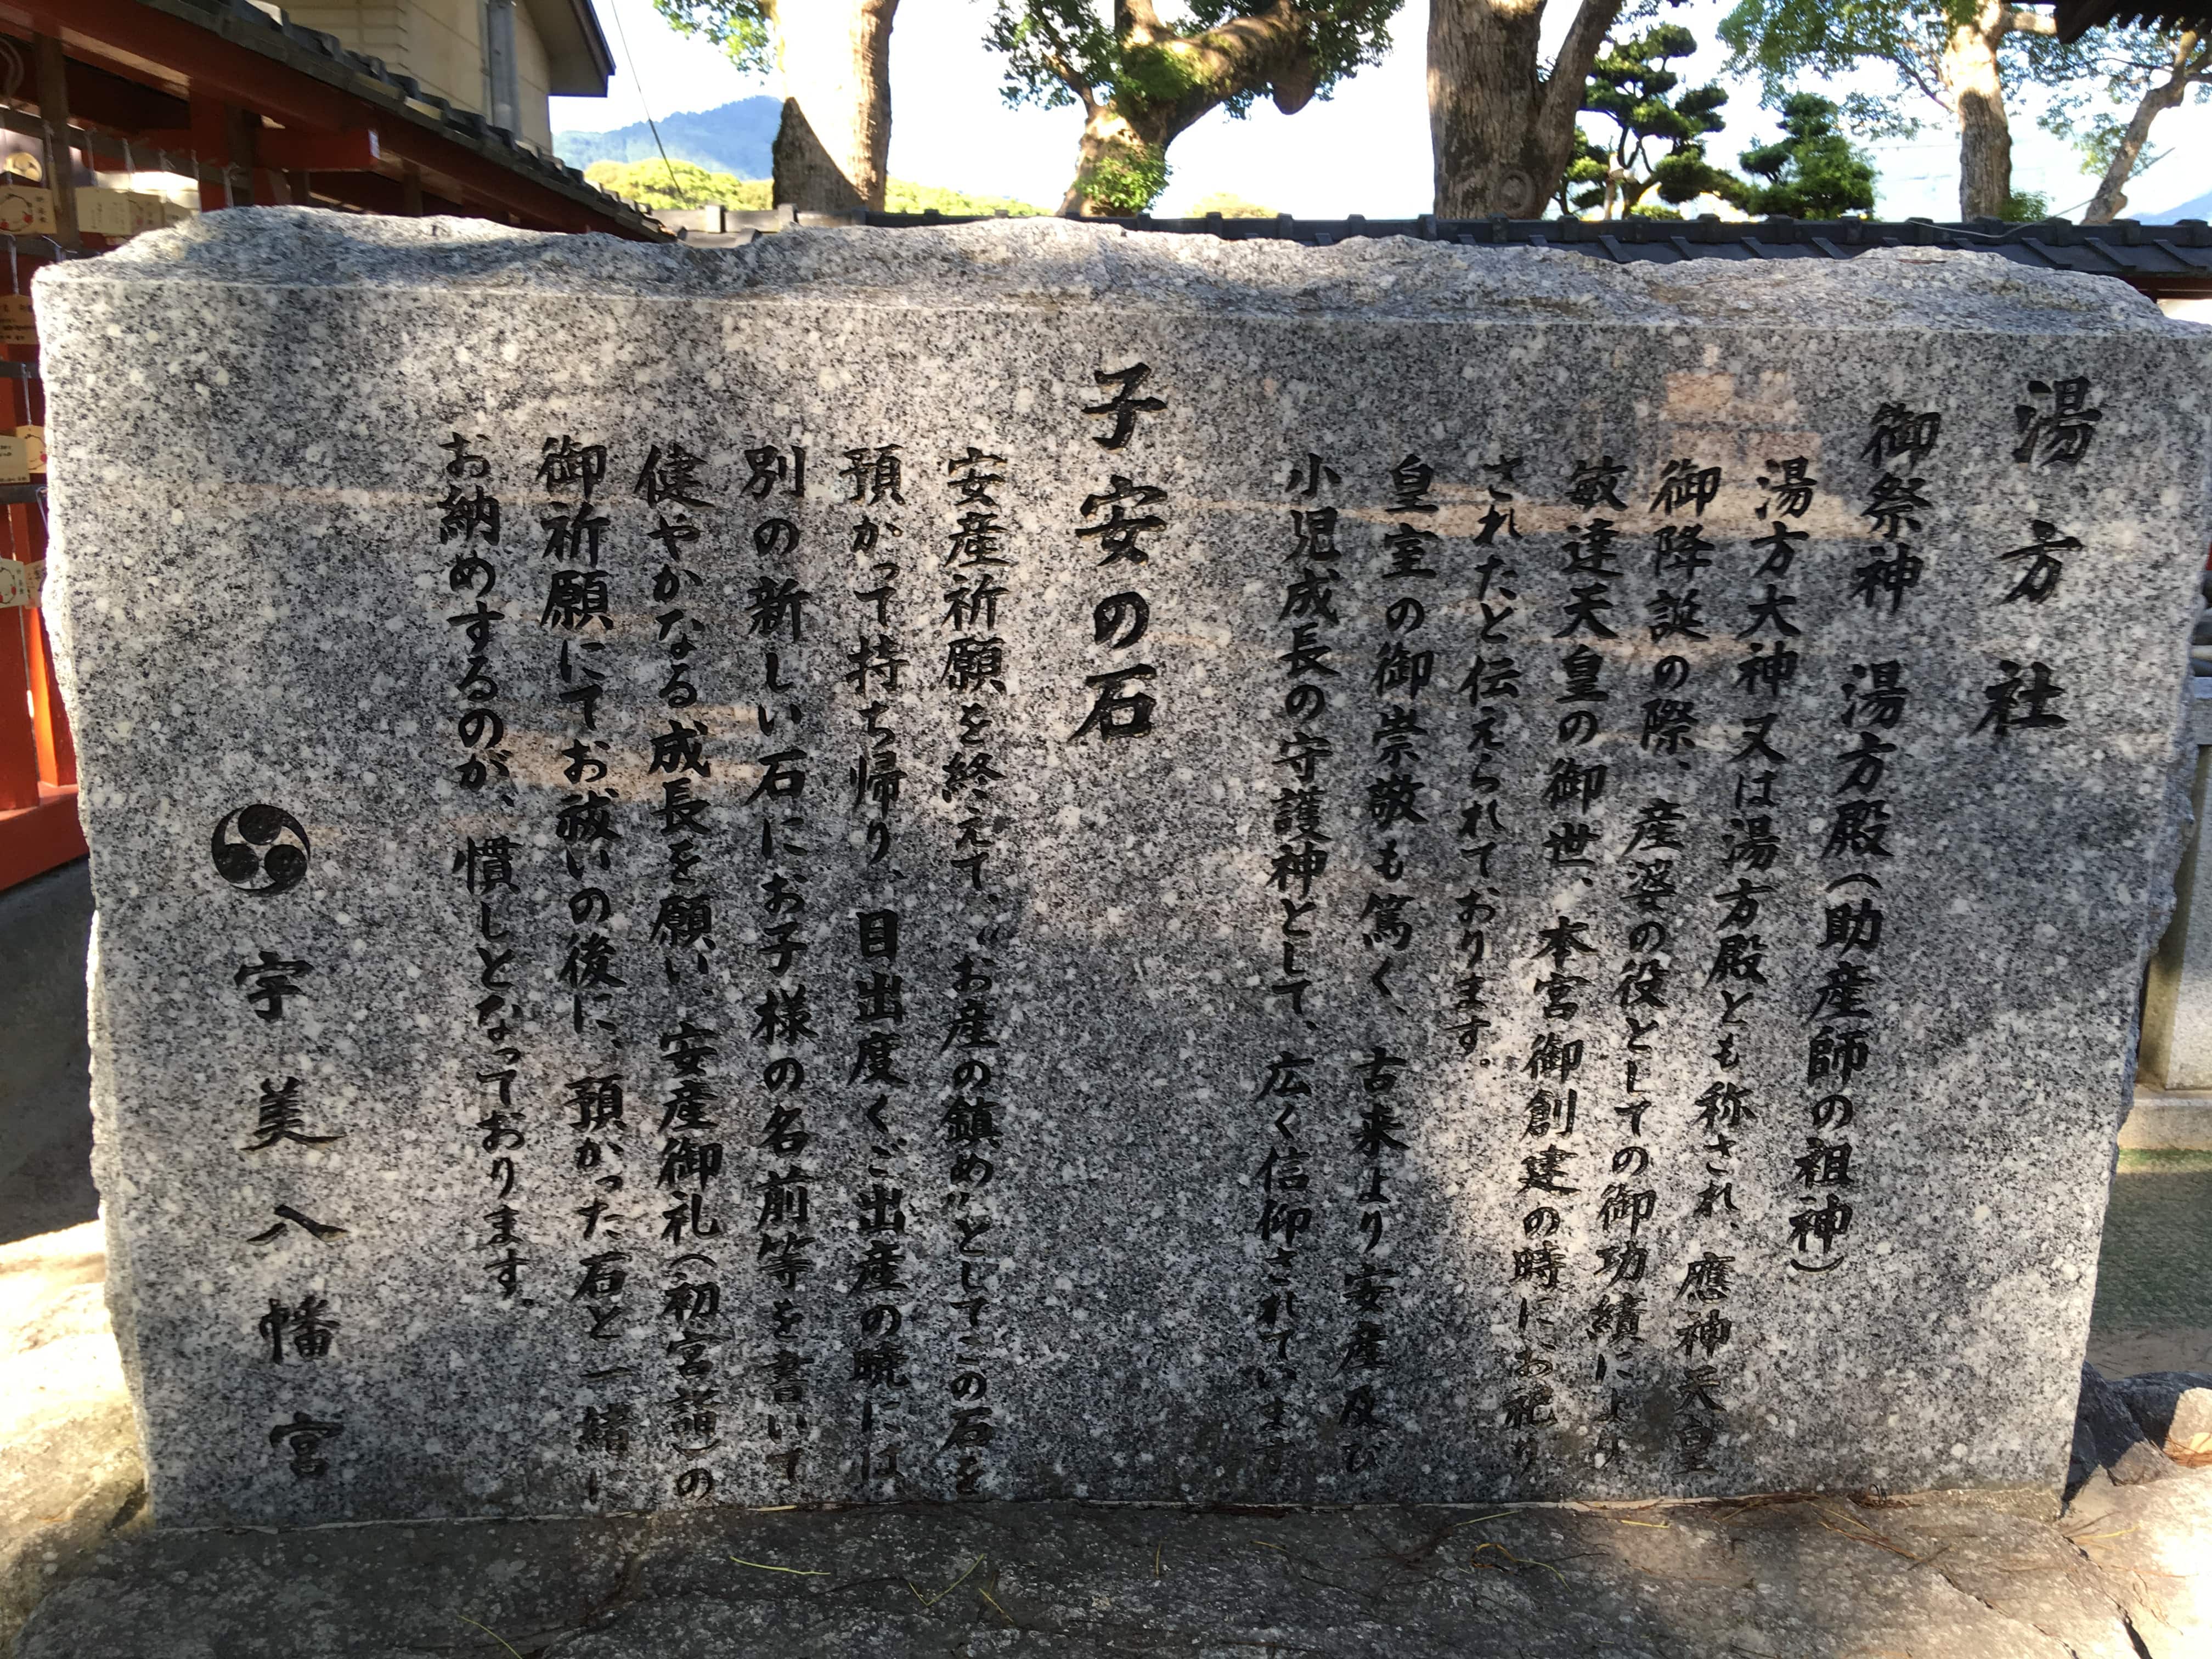 湯方社
御祭神 湯方殿(助産師の祖神)
湯方大神又は湯方殿とも称され、應神天皇
御降誕の際、産婆の役としての御功績により
敏達天皇の御世、本宮御創建の時にお祀り
されたと伝えられております。
皇室の御崇敬も篤く、古来より安産及び
小児成長の守護神として、広く信仰されています
子安の石
安産祈願を終えて、〝お産の鎮め〟としてこの石を
預かって持ち帰り、目出度くご出産の暁には
別の新しい石にお子様の名前等を書いて
健やかなる成長を願い、安産御礼(初宮詣)の
御祈願にてお祓いの後に、預かった石と一緒に
お納めするのが、慣しとなっております。
宇美八幡宮